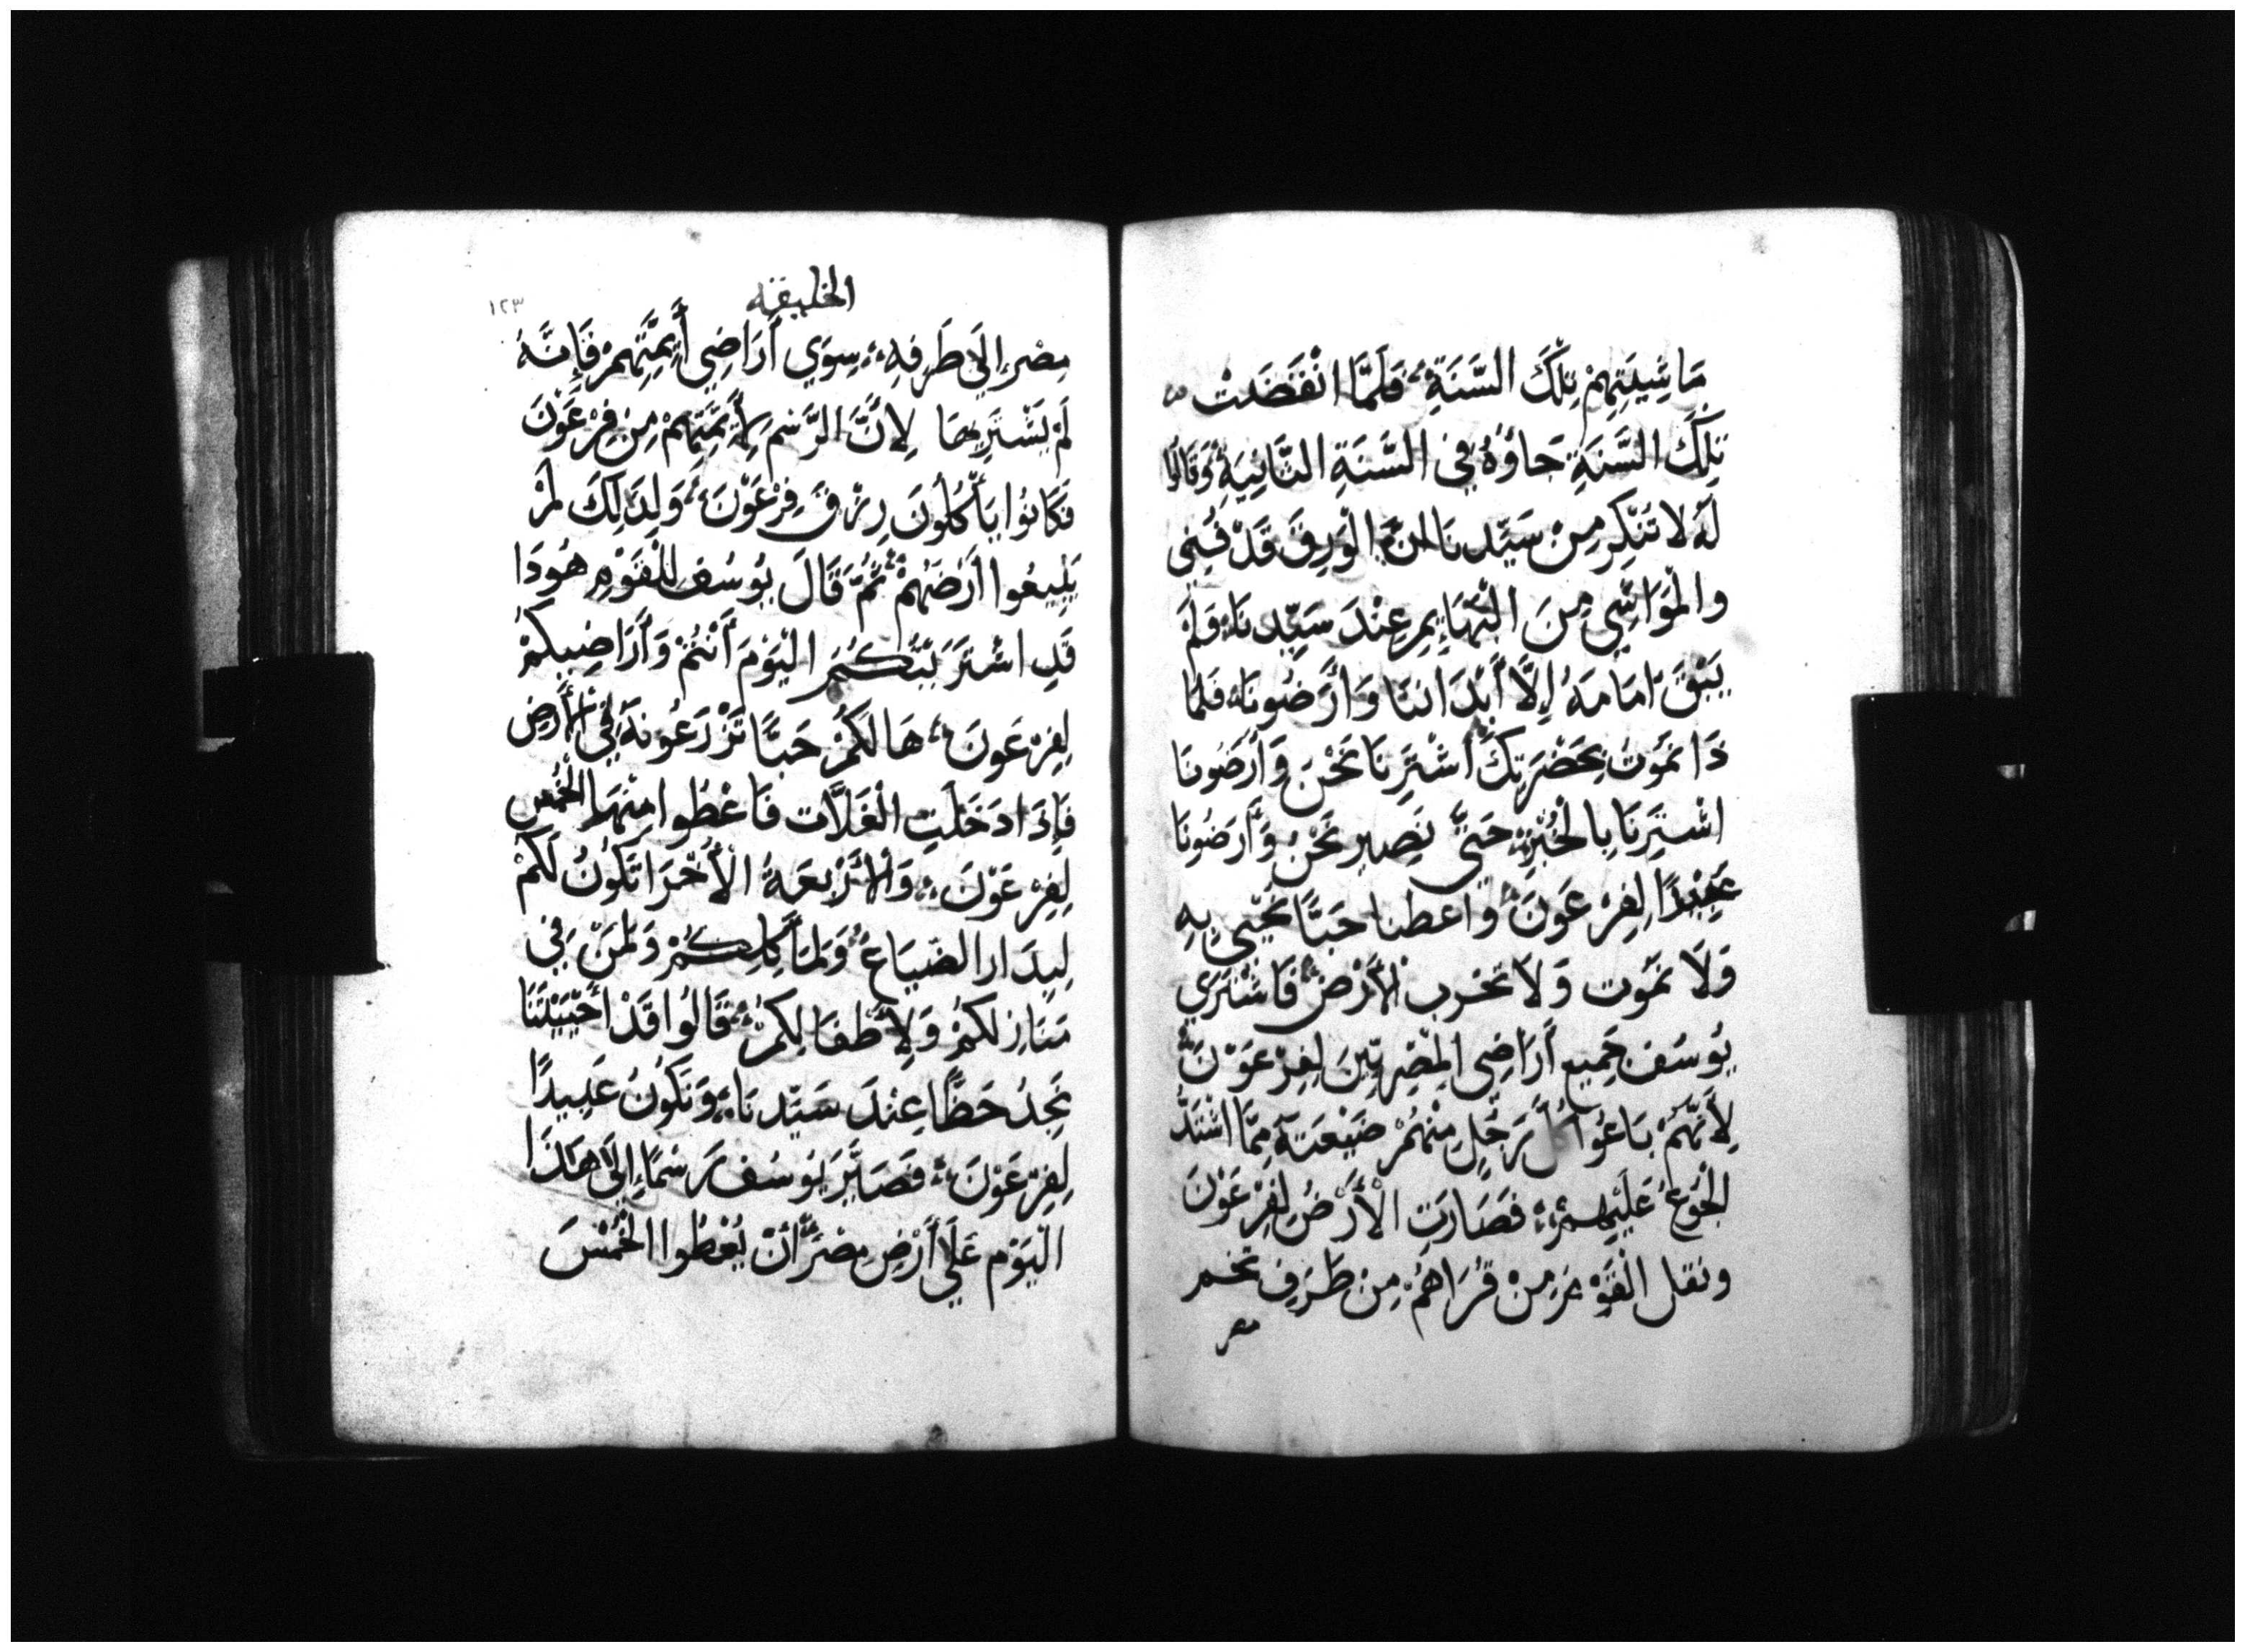 مَاشِيَتِهِمْ تِلْكَ السَّنَةِ؛ فَلَمَّا انْقَضَتْ
تِلْكَ السَّنَةِ جَاؤُهُ فِي السَّنَةِ الثَّانِيَةِ وَقَالُوا
لَهُ لَا تَنْكِر مِنْ سَيِّدِنَا انَّ الْوَرِقَ قَدْ فُنِي
والْمَوَاشِي مِنَ الْبَهَايِمِ عِنْدَ سَيِّدِنَا؛ فَلَمْ
يَبْقَ امَامَهُ إِلَّا أَبْدَانَنَا وَأَرَضُونَا؛ فَلِمَا
ذَا نَمُوتُ بِحَضْرَتِكَ اشْتَرِنَا نَحْنُ وَأَرَضُونَا
اشْتَرِنَا بِالْخُبْزِ؛ حَتَّى نَصِير نَحْنُ وَأَرَضُونَا
عَبِيْدًا لِفِرْعَوْنَ؛ وَاعطنا حَبًّا نَحْيَى بِهِ
وَلَا نَمُوت وَلَا تخرب الْأَرْضُ؛ فَاشْتَرَي
يُوسُف جَمِيع أَرَاضِي الْمِصْرِيّينَ لِفِرْعَوْنَ؛
لِأَنَّهُمْ بَاعُوا كُلُّ رَجُلٍ مِنْهُمْ ضَيْعَتَهُ مِمَّا اشْتَدَّ
الْجُوعُ عَلَيْهِمْ؛ فَصَارَتِ الْأَرْضُ لِفِرْعَوْنَ
ونقل الْقَوْمَ مِنْ قُرَاهُمْ مِنْ طَرَفِ تخم
مصر
الخليقه
١٢٣
مِصْرَ إِلَى طَرَفِهِ؛ سِوَي أَرَاضِي أَيِمَّتِهِمْ فَإِنَّهُ
لَمْ يَشْتَرِيهَا لِأَنَّ الرَّسْمَ لِأَيِمَّتِهِمْ مِنْ فِرْعَوْنَ
فَكَانُوا يَأْكُلُونَ رِزْقَ فِرْعَوْنَ؛ وَلِذَلِكَ لَمْ
يَبِيعُوا أَرْضَهُمْ؛ ثُمَّ قَالَ يُوسُف لِلْقَوْمِ هُوَذَا
قَدِ اشْتَرَيْتُكُمُ الْيَوْمَ أَنْتُمْ وَأَرَاضِيكُمْ
لِفِرْعَوْنَ؛ هَا لَكُمْ حَبًّا تَزْرَعُونَهُ فِي الْأَرْضِ
فَإِذَا دَخَلَتِ الْغَلَّات فَاعْطُوا مِنْهَا الْخُمْسِ
لِفِرْعَوْنَ؛ وَالْأَرْبَعَةُ الْأُخْرَا تَكُونُ لَكُمْ
لِبِدَارِ الضِّيَاعِ؛ وَلِمَأْكَلِكُمْ وَلِمَنْ فِي
مَنَازِلكُمْ وَلِأَطْفَالِكُمْ؛ قَالُوا قَدْ أَحْيَيْتَنَا
نَجِدُ حَظًّا عِنْدَ سَيِّدِنَا؛ وَنَكُونُ عَبِيدًا
لِفِرْعَوْنَ؛ فَصَيَّرَ يُوسُفُ رَسْمًا إِلَى هَذَا
الْيَوْمِ عَلَي أَرْضِ مِصْرَ أَنْ يُعْطُوا الْخُمْسَ